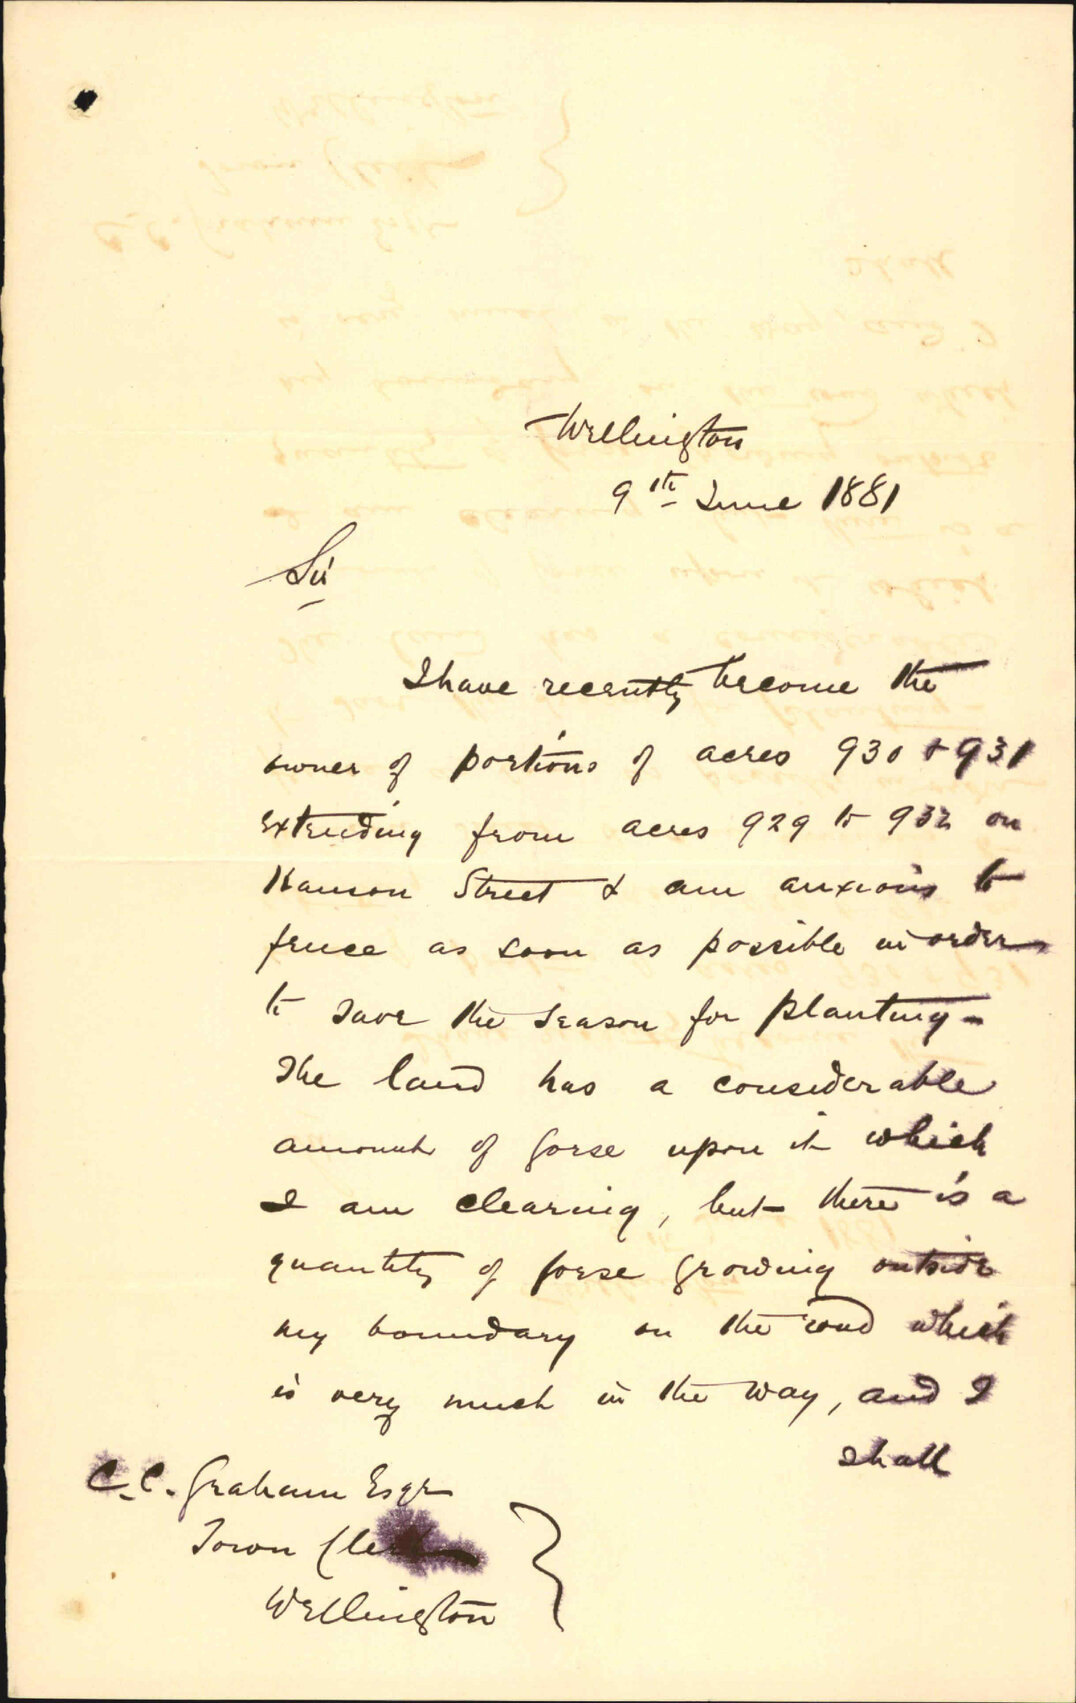 Wellington
9th June 1881
Sir
I have recently become the
owner of portions of acres 930 & 931
extending from acres 929 to 932 on
Hanson Street & am anxious to
fence as soon as possible in order
to save the season for planting -
The land has a considerable
amount of gorse upon it which
I am clearing, but there is a
quantity of gorse growing outside
my boundary on the road which
is very much in the way, and I
shall
C. C. Graham Esqr
Town Clerk
Wellington